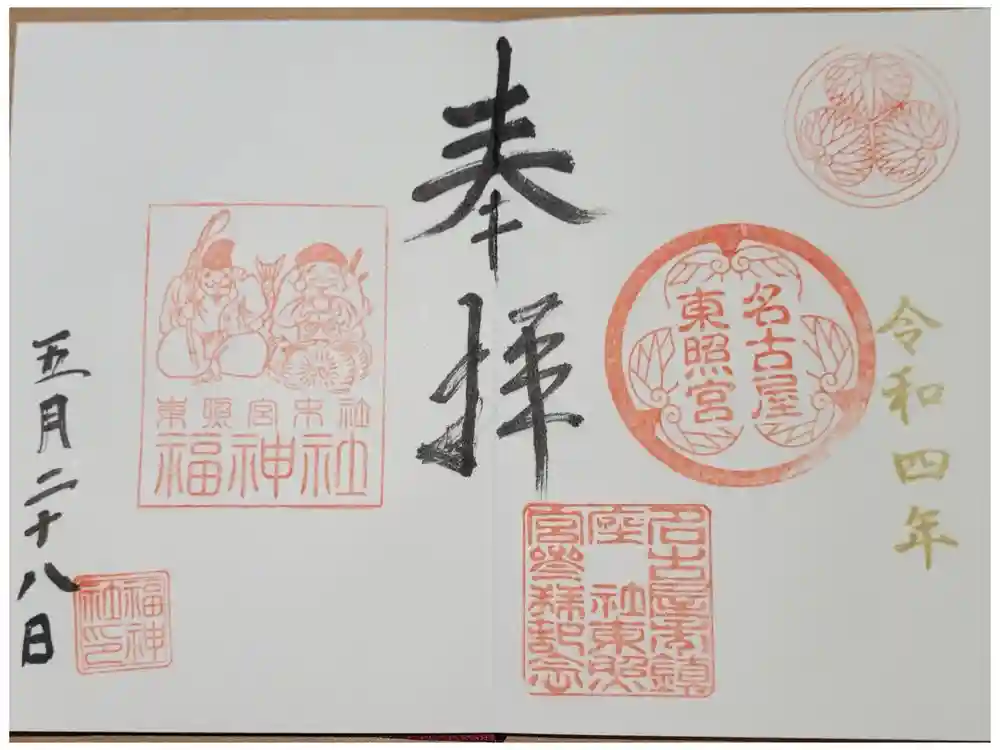 令和四年
名古屋
東照宮
奉拝
名古屋市鎮
座 社東照
宮参拝記念
東照宮末社
福神社
五月二十八日
福神
社印